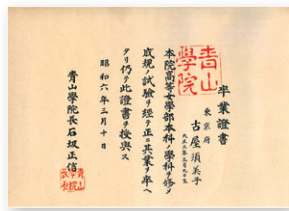 卒業證書
東京府
古屋須美子
大正三年三月九日生
本院高等女學部本科ノ學科ヲ修メ
成規ノ試驗ヲ經テ正ニ其業ヲ卒ヘ
タリ仍テ此證書ヲ授與ス
昭和六年三月十日
青山學院長石坂正信
青山
學院